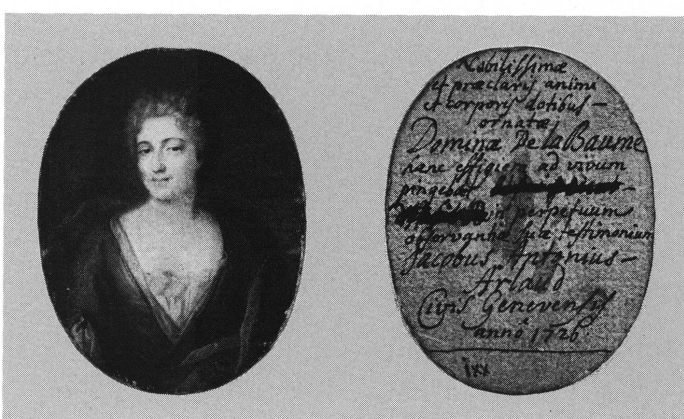 Nobilissimæ
et præclaris animi
et corporis dotibus –
ornatæ
Dominæ De la Baume
hanc effigiem ad vivum
pingebat
in perpetuum
observantiæ suæ testimonium
Jacobus Antonius –
Arlaud
Civis Genevensis
anno 1726